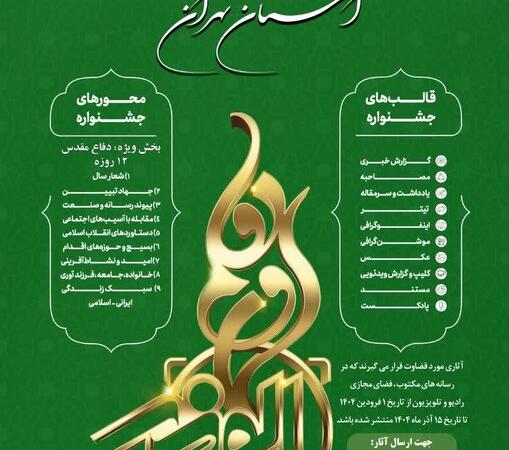 استان تهران
قالب‌های
جشنواره
گـزارش خبری
مصـاحبه
یادداشت و سرمقاله
تیتـر
اینفـوگرافی
موشـن‌گرافی
عکـس
کلیپ و گزارش ویدئویی
مستنـد
پادکسـت
محـورهای
جشنواره
بخش ویژه: دفاع مقدس
۱۲ روزه
۱) شعار سال
۲) جـهـاد تبییـن
۳) پیوند رسانه و صنعـت
۴) مقابله با آسیب‌های اجتماعی
۵) دستاوردهای انقلاب اسلامی
۶) بسیج و حوزه‌های اقدام
۷) امیـد و نشـاط‌آفرینی
۸) خانواده،جامعه،فرزندآوری
۹) سبـک زنـدگـی
ایرانی - اسلامی
آثاری مورد قضاوت قرار می گیرند که در
رسانه های مکتوب، فضای مجازی
رادیو و تلویزیون از تاریخ ۱ فرودین ۱۴۰۴
تا تاریخ ۱۵ آذر ماه ۱۴۰۴ منتشر شده باشد
جهت ارسال آثار: